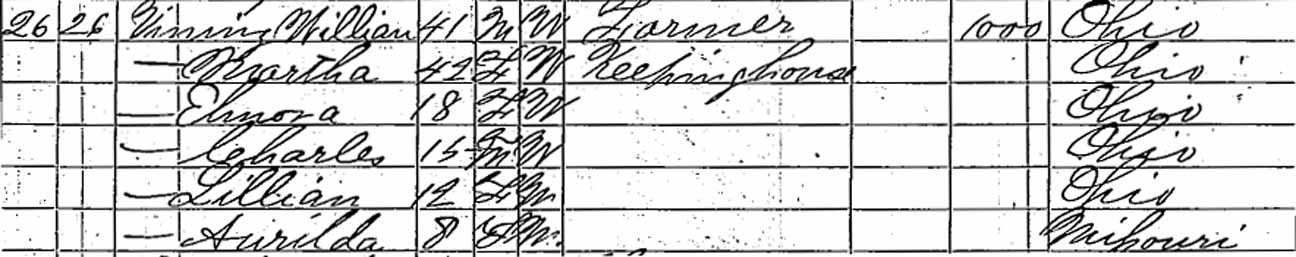 26 26 Vining William 41 M W Farmer 1000 Ohio
— Martha 42 F W Keeping house Ohio
— Elnora 18 F W Ohio
— Charles 15 M W Ohio
— Lillian 12 F W Ohio
— Aurilda 8 F W Missouri